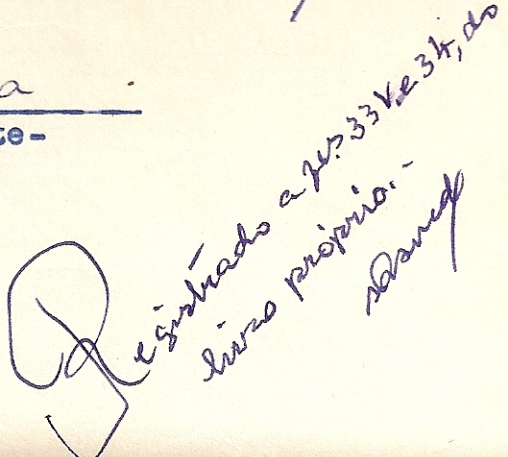 a
te-
Registrado a fls. 33V. e 34, do
livro próprio.-